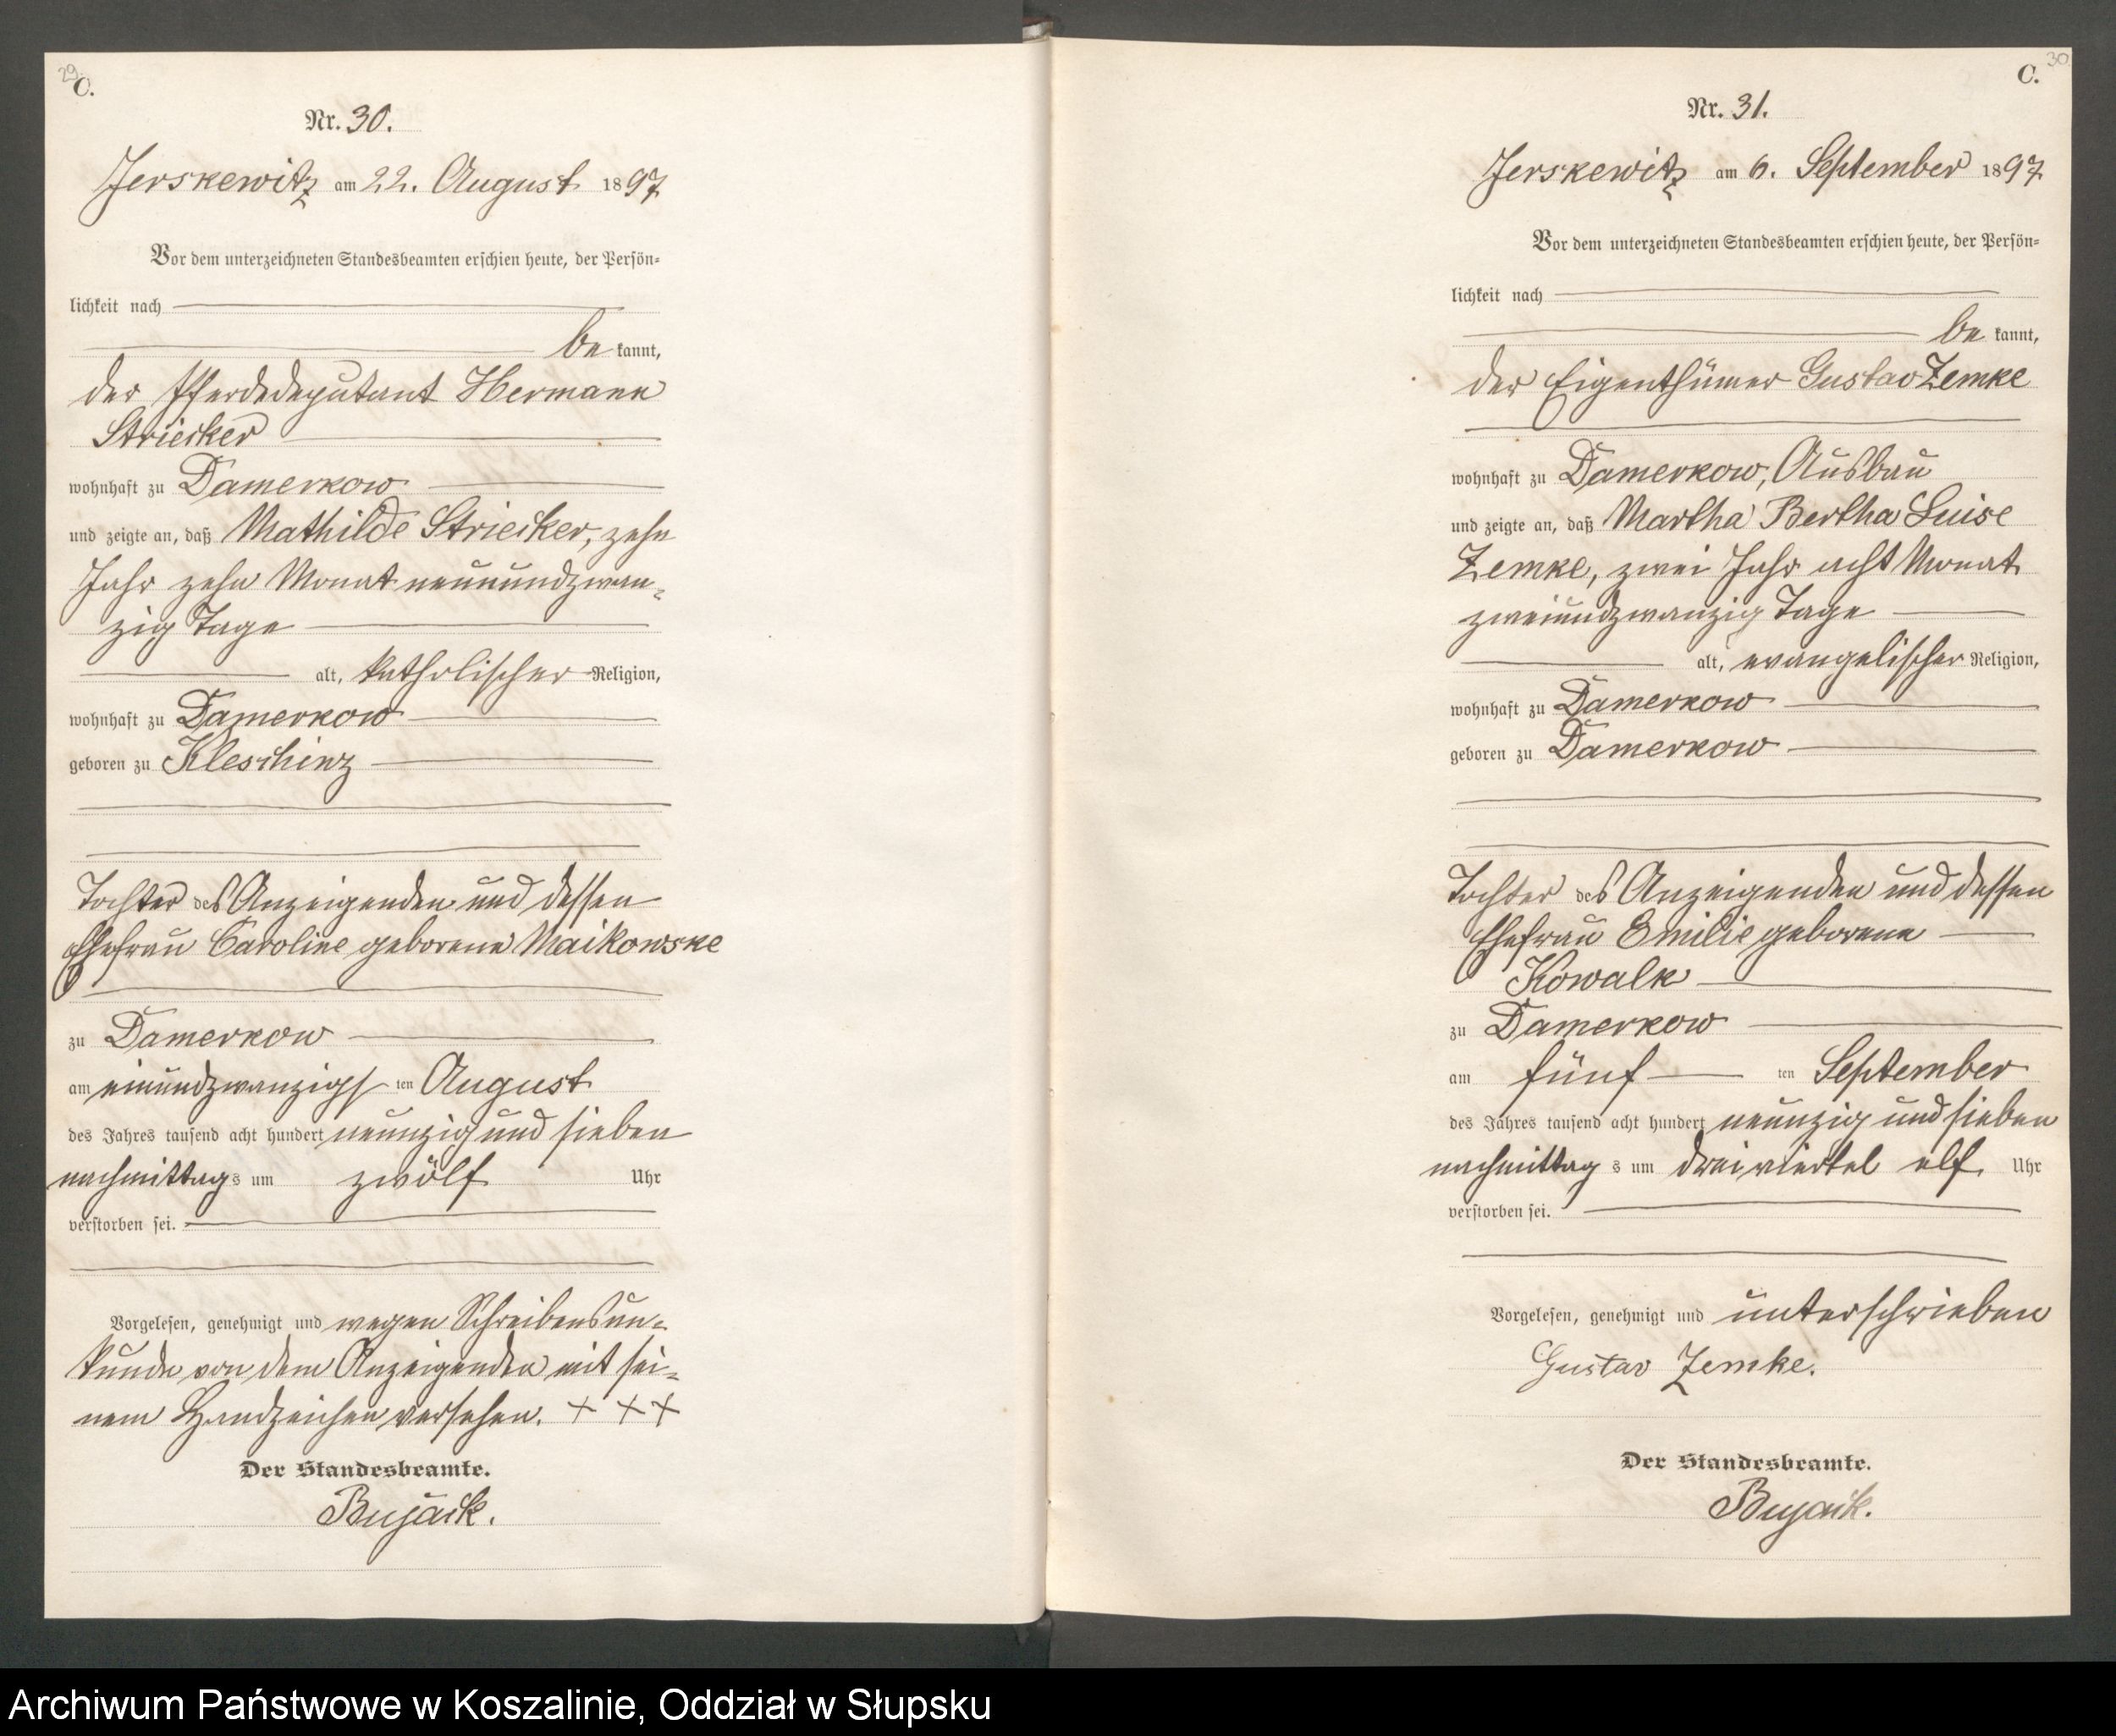 29.
C.
Nr. 30.
Jerskewitz am 22. August 1897
Vor dem unterzeichneten Standesbeamten erschien heute, der Persön-
lichkeit nach
be kannt,
der Pferdedeputant Hermann
Striecker
wohnhaft zu Damerkow
und zeigte an, daß Mathilde Striecker, zehn
Jahr zehn Monat neunundzwan-
zig Tage
alt, katholischer Religion,
wohnhaft zu Damerkow
geboren zu Kleschinz
Tochter des Anzeigenden und dessen
Ehefrau Caroline geborene Maikowske
zu Damerkow
am einundzwanzigs ten August
des Jahres tausend acht hundert neunzig und sieben
nachmittags um zwölf Uhr
verstorben sei.
Vorgelesen, genehmigt und wegen Schreibensun-
kunde von dem Anzeigenden mit sei-
nem Handzeichen versehen. + + +
Der Standesbeamte.
Bujack.
30.
C.
Nr. 31.
Jerskewitz am 6. September 1897
Vor dem unterzeichneten Standesbeamten erschien heute, der Persön-
lichkeit nach
be kannt,
der Eigenthümer Gustav Zemke
wohnhaft zu Damerkow, Ausbau
und zeigte an, daß Martha Bertha Luise
Zemke, zwei Jahr acht Monat
zweiundzwanzig Tage
alt, evangelischer Religion,
wohnhaft zu Damerkow
geboren zu Damerkow
Tochter des Anzeigenden und dessen
Ehefrau Emilie geborene
Kowalk
zu Damerkow
am fünf ten September
des Jahres tausend acht hundert neunzig und sieben
nachmittag s um dreiviertel elf Uhr
verstorben sei.
Vorgelesen, genehmigt und unterschrieben
Gustav Zemke.
Der Standesbeamte.
Bujack.
Archiwum Państwowe w Koszalinie, Oddział w Słupsku